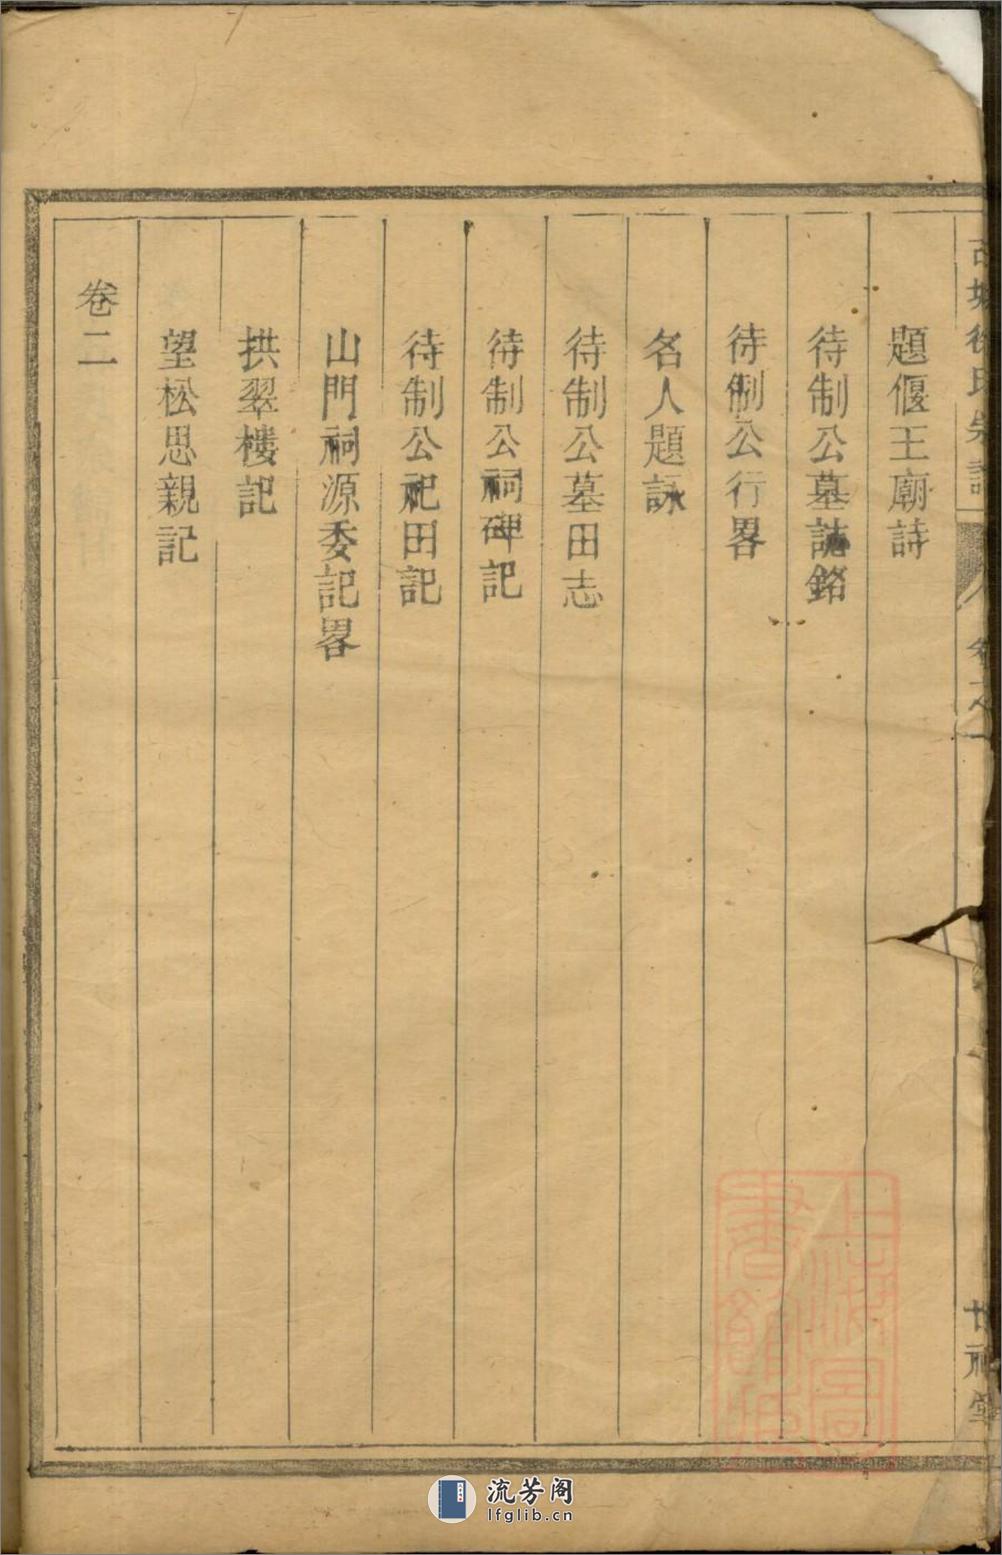 徐氏宗譜
卷之一
題偃王廟詩
待制公墓誌銘
待制公行畧
名人題詠
待制公墓田志
待制公祠碑記
待制公祀田記
山門祠源委記畧
拱翠樓記
望松思親記
卷二
上海圖
書館藏
流芳阁
lfglib.cn